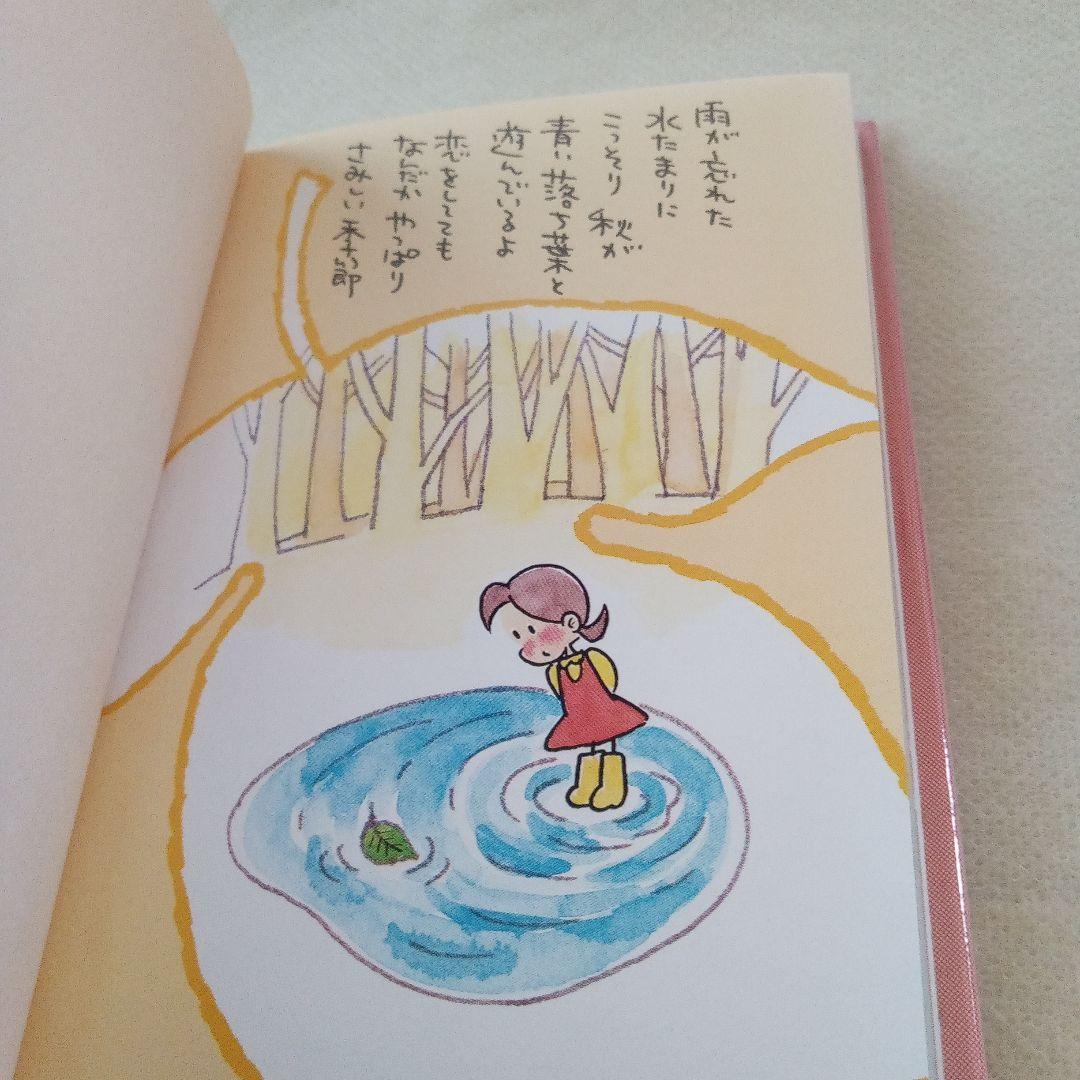 雨が忘れた
水たまりに
こっそり 秋が
青い落ち葉と
遊んでいるよ
恋をしてても
なんだか やっぱり
さみしい季節